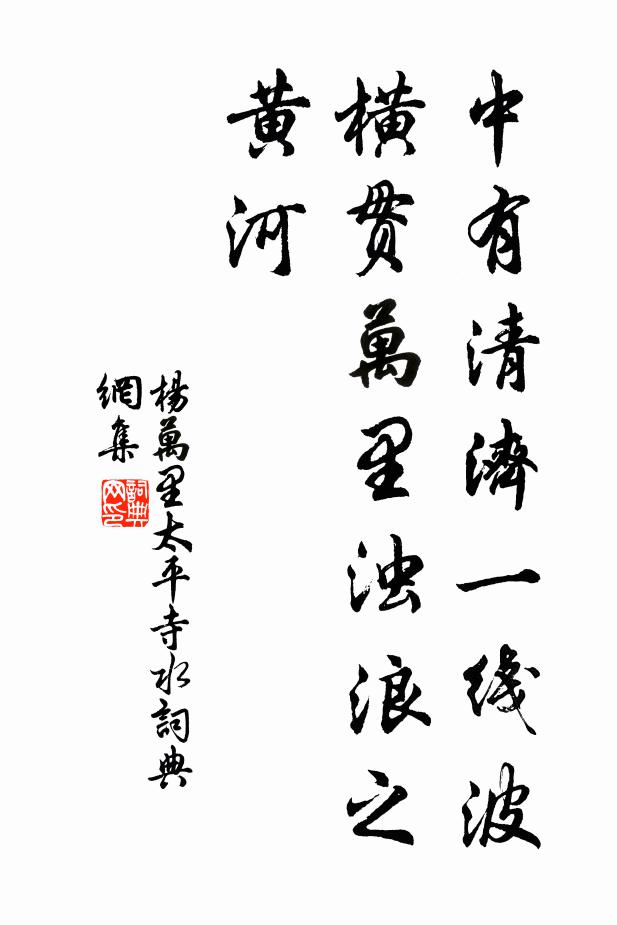 中有清濟一线波
横贯萬里浊浪之
黄河
楊萬里太平寺水詞典
網集
詞典
网印